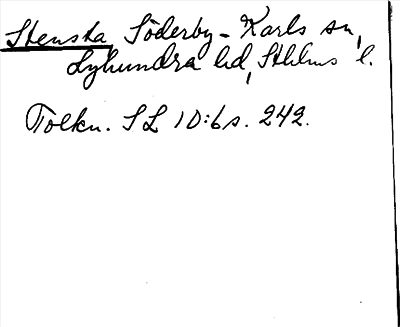 Stenska Söderby-Karls sn,
Lyhundra hd, Sthlms l.
Tolkn. SL 10:6 s. 242.